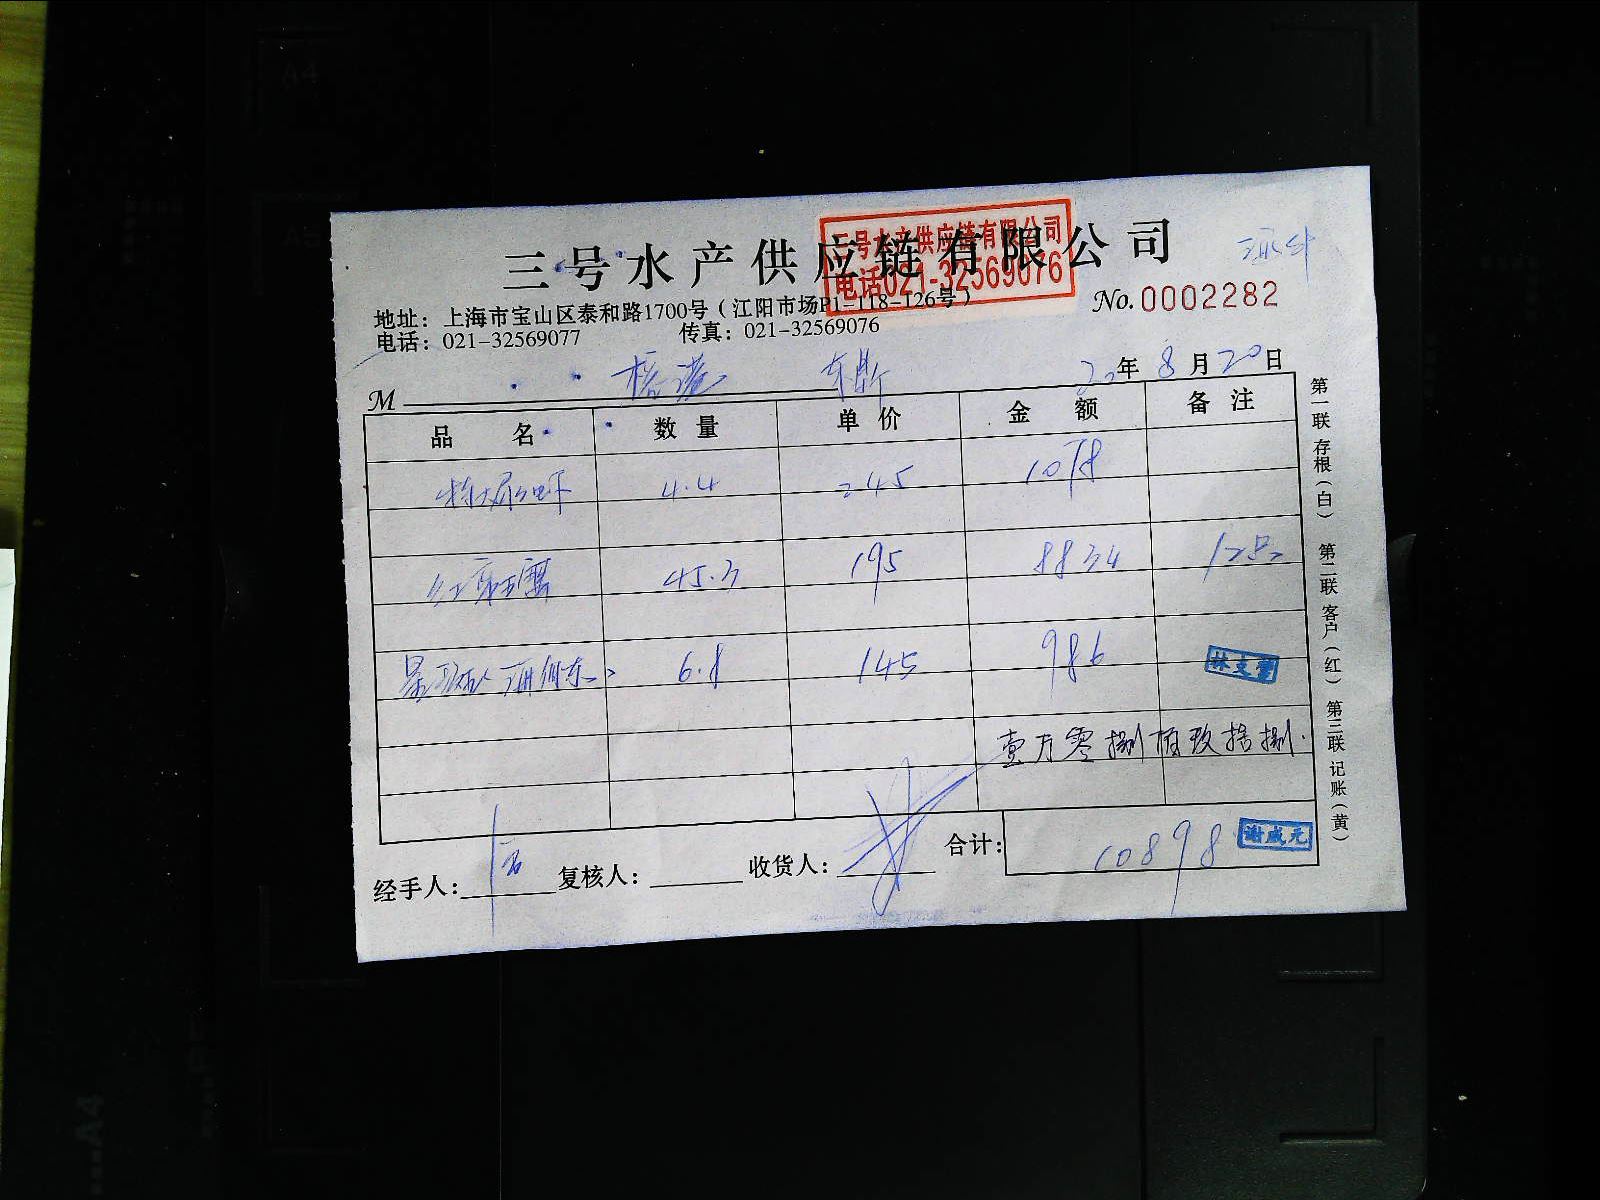 三号水产供应链有限公司
三号水产供应链有限公司
电话021-32569076
地址：上海市宝山区泰和路1700号（江阳市场P1-118-126号）
No.0002282
电话：021-32569077 传真：021-32569076
M
20年8月20日
品 名 数 量 单 价 金 额 备 注
4.4 245 1078
45.3 195 8834
6.8 145 986
林
壹万零捌佰玖拾捌.
合计： 10898 谢成元
经手人： 复核人： 收货人：
第一联 存根（白） 第二联 客户（红） 第三联 记账（黄）